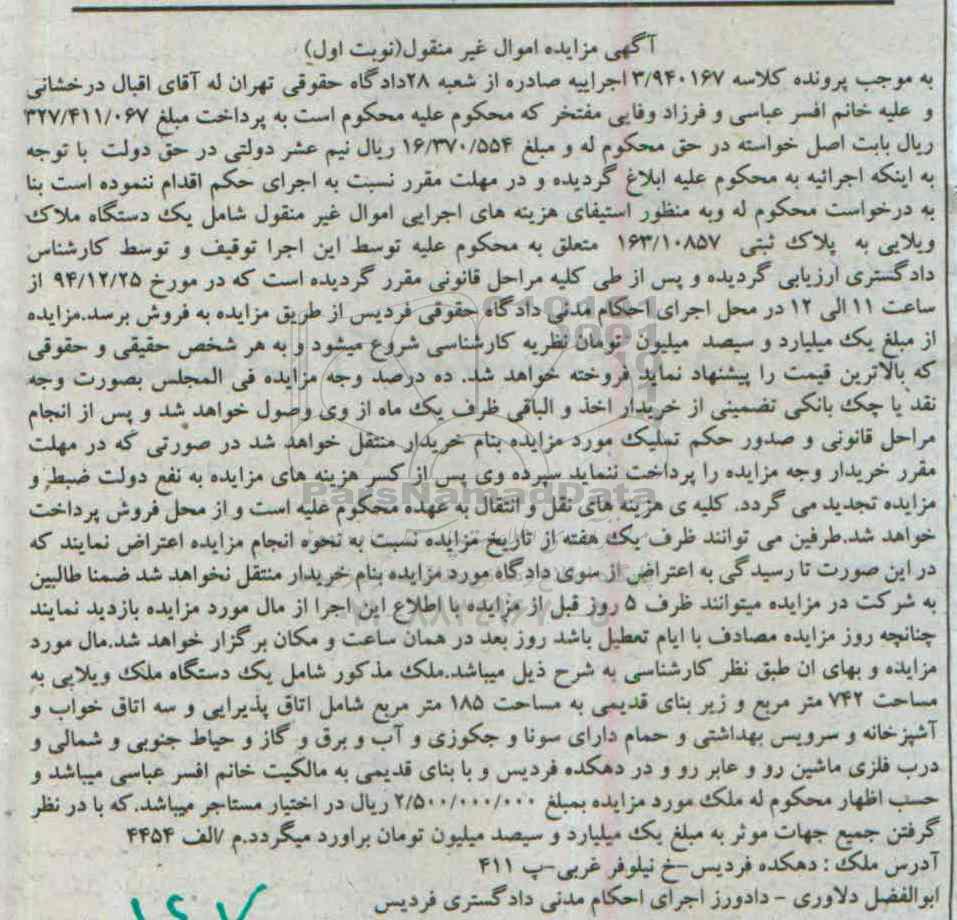 آگهی مزایده اموال غیر منقول(نوبت اول)
به موجب پرونده کلاسه ۳/۹۴۰۱۶۷ اجراییه صادره از شعبه ۲۸دادگاه حقوقی تهران له آقای اقبال درخشانی
و علیه خانم افسر عباسی و فرزاد وفایی مفتخر که محکوم علیه محکوم است به پرداخت مبلغ ۳۲۷/۴۱۱/۰۶۷
ریال بابت اصل خواسته در حق محکوم له و مبلغ ۱۶/۳۷۰/۵۵۴ ریال نیم عشر دولتی در حق دولت با توجه
به اینکه اجرائیه به محکوم علیه ابلاغ گردیده و در مهلت مقرر نسبت به اجرای حکم اقدام ننموده است بنا
به درخواست محکوم له وبه منظور استیفای هزینه های اجرایی اموال غیر منقول شامل یک دستگاه ملاک
ویلایی به پلاک ثبتی ۱۶۳/۱۰۸۵۷ متعلق به محکوم علیه توسط این اجرا توقیف و توسط کارشناس
دادگستری ارزیابی گردیده و پس از طی کلیه مراحل قانونی مقرر گردیده است که در مورخ ۹۴/۱۲/۲۵ از
ساعت ۱۱ الی ۱۲ در محل اجرای احکام مدنی دادگاه حقوقی فردیس از طریق مزایده به فروش برسد.مزایده
از مبلغ یک میلیارد و سیصد میلیون تومان نظریه کارشناسی شروع میشود و به هر شخص حقیقی و حقوقی
که بالاترین قیمت را پیشنهاد نماید فروخته خواهد شد. ده درصد وجه مزایده فی المجلس بصورت وجه
نقد یا چک بانکی تضمینی از خریدار اخذ و الباقی ظرف یک ماه از وی وصول خواهد شد و پس از انجام
مراحل قانونی و صدور حکم تملیک مورد مزایده بنام خریدار منتقل خواهد شد در صورتی که در مهلت
مقرر خریدار وجه مزایده را پرداخت ننماید سپرده وی پس از کسر هزینه های مزایده به نفع دولت ضبط و
مزایده تجدید می گردد. کلیه ی هزینه های نقل و انتقال به عهده محکوم علیه است و از محل فروش پرداخت
خواهد شد.طرفین می توانند ظرف یک هفته از تاریخ مزایده نسبت به نحوه انجام مزایده اعتراض نمایند که
در این صورت تا رسیدگی به اعتراض از سوی دادگاه مورد مزایده بنام خریدار منتقل نخواهد شد ضمنا طالبین
به شرکت در مزایده میتوانند ظرف ۵ روز قبل از مزایده با اطلاع این اجرا از مال مورد مزایده بازدید نمایند
چنانچه روز مزایده مصادف با ایام تعطیل باشد روز بعد در همان ساعت و مکان برگزار خواهد شد.مال مورد
مزایده و بهای ان طبق نظر کارشناسی به شرح ذیل میباشد.ملک مذکور شامل یک دستگاه ملک ویلایی به
مساحت ۷۴۲ متر مربع و زیر بنای قدیمی به مساحت ۱۸۵ متر مربع شامل اتاق پذیرایی و سه اتاق خواب و
آشپزخانه و سرویس بهداشتی و حمام دارای سونا و جکوزی و آب و برق و گاز و حیاط جنوبی و شمالی و
درب فلزی ماشین رو و عابر رو و در دهکده فردیس و با بنای قدیمی به مالکیت خانم افسر عباسی میباشد و
حسب اظهار محکوم له ملک مورد مزایده بمبلغ ۲/۵۰۰/۰۰۰/۰۰۰ ریال در اختیار مستاجر میباشد.که با در نظر
گرفتن جمیع جهات موثر به مبلغ یک میلیارد و سیصد میلیون تومان براورد میگردد.م /الف ۴۴۵۴
آدرس ملک : دهکده فردیس-خ نیلوفر غربی-پ ۴۱۱
ابوالفضل دلاوری - دادورز اجرای احکام مدنی دادگستری فردیس
ParsNamadData